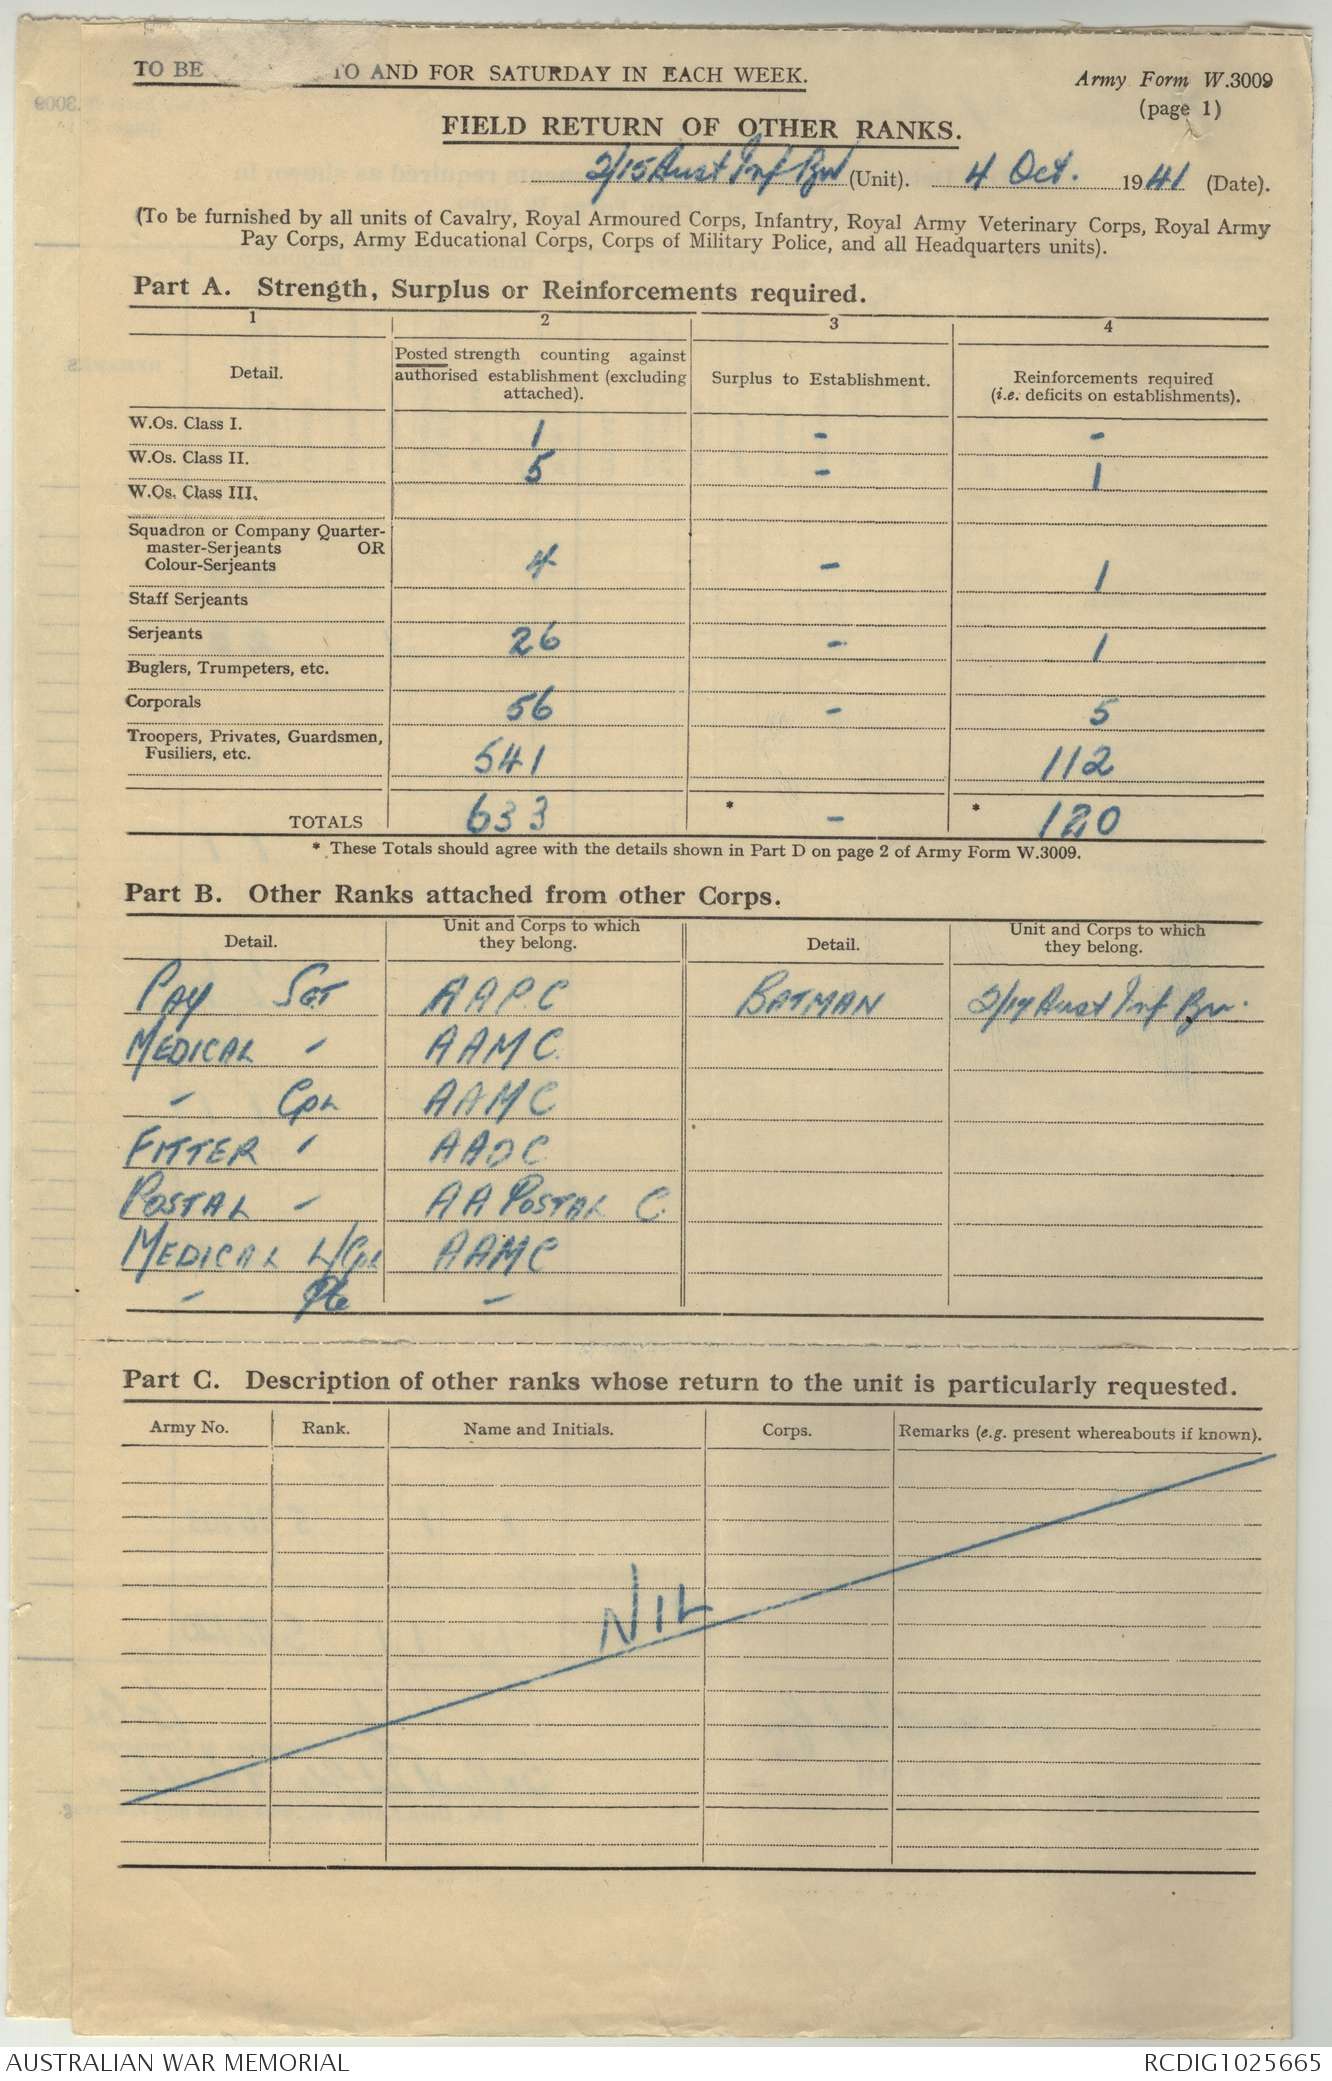 TO BE TO AND FOR SATURDAY IN EACH WEEK.
Army Form W.3009
(page 1)
FIELD RETURN OF OTHER RANKS.
2/15 Aust Inf Bn (Unit). 4 Oct. 1941 (Date).
(To be furnished by all units of Cavalry, Royal Armoured Corps, Infantry, Royal Army Veterinary Corps, Royal Army
Pay Corps, Army Educational Corps, Corps of Military Police, and all Headquarters units).
Part A. Strength, Surplus or Reinforcements required.
1 2 3 4
Detail. Posted strength counting against authorised establishment (excluding attached). Surplus to Establishment. Reinforcements required (i.e. deficits on establishments).
W.Os. Class I. 1 - -
W.Os. Class II. 5 - 1
W.Os. Class III.
Squadron or Company Quarter-
master-Serjeants OR
Colour-Serjeants 4 - 1
Staff Serjeants
Serjeants 26 - 1
Buglers, Trumpeters, etc.
Corporals 56 - 5
Troopers, Privates, Guardsmen,
Fusiliers, etc. 541 112
TOTALS 633 * - * 120
* These Totals should agree with the details shown in Part D on page 2 of Army Form W.3009.
Part B. Other Ranks attached from other Corps.
Detail. Unit and Corps to which they belong. Detail. Unit and Corps to which they belong.
PAY SGT AAPC BATMAN 2/17 Aust Inf Bn.
MEDICAL " AAMC
" CPL AAMC
FITTER " AAOC
POSTAL " AA POSTAL C
MEDICAL L/CPL AAMC
" Pte "
Part C. Description of other ranks whose return to the unit is particularly requested.
Army No. Rank. Name and Initials. Corps. Remarks (e.g. present whereabouts if known).
NIL
AUSTRALIAN WAR MEMORIAL RCDIG1025665